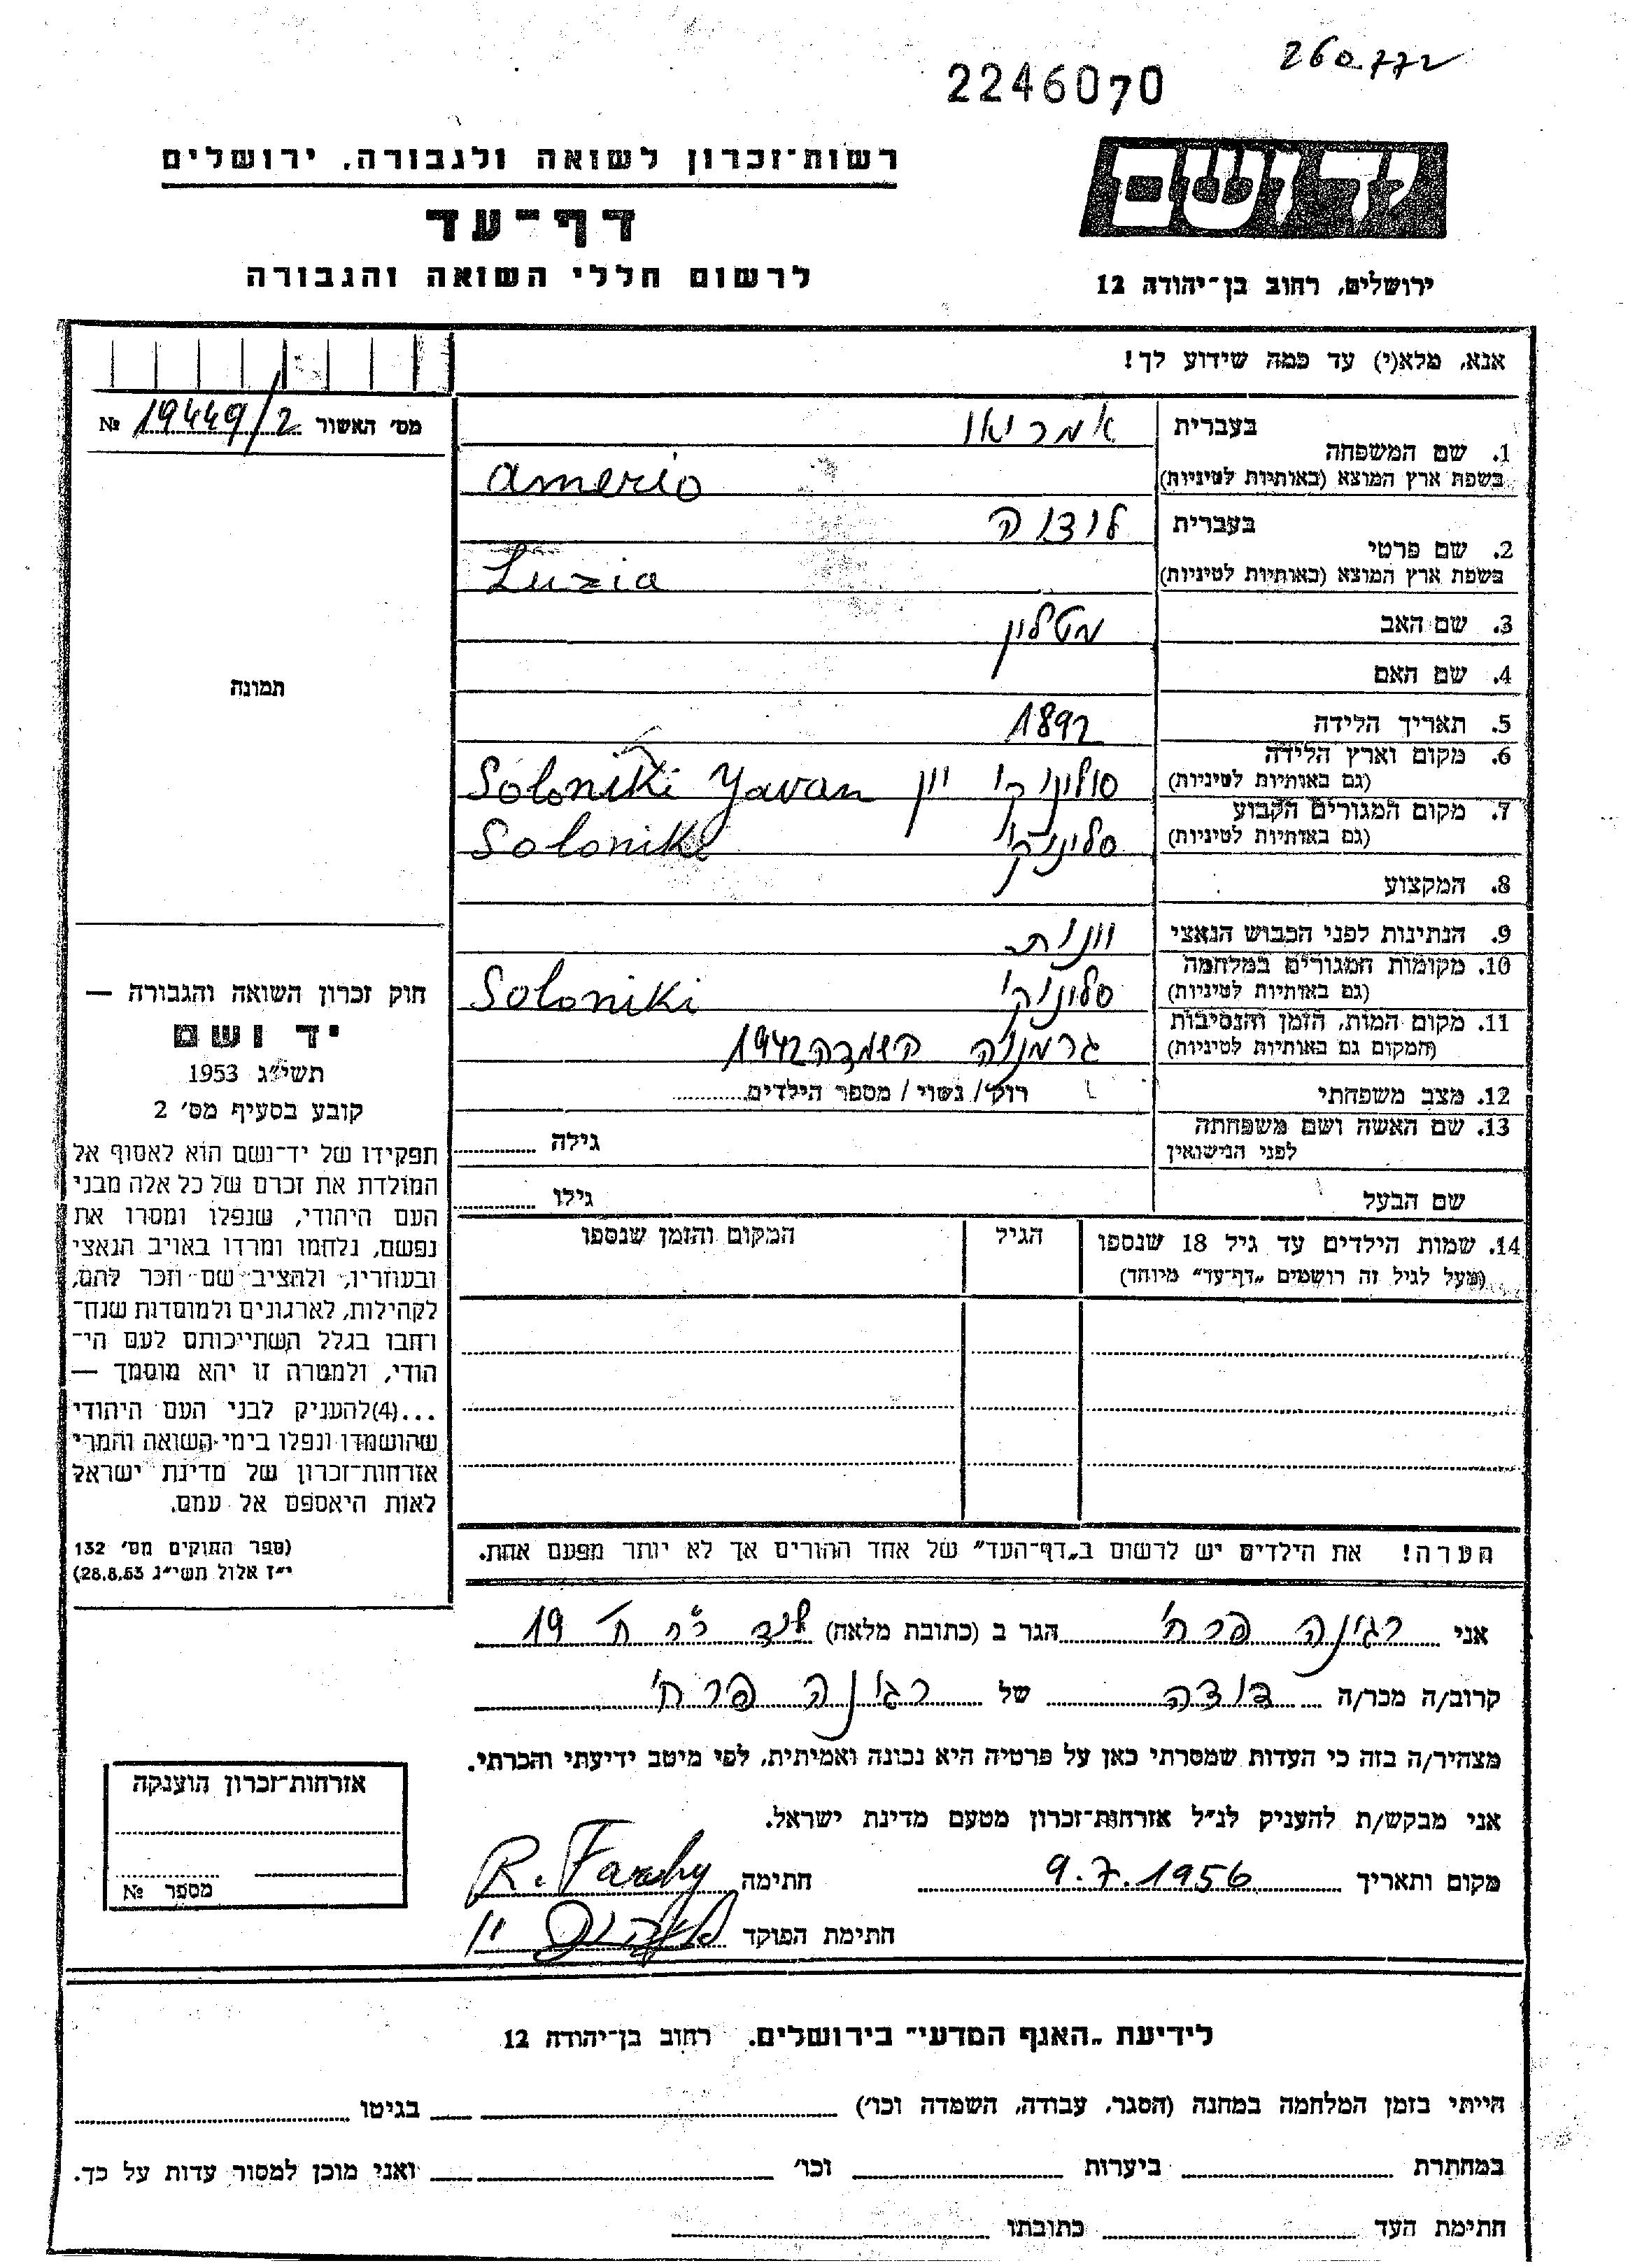 260772
2246070
רשות־זכרון לשואה ולגבורה, ירושלים
דף־עד
לרשום חללי השואה והגבורה
יד ושם
ירושלים, רחוב בן־יהודה 12
אנא, מלא(י) עד כמה שידוע לך!
מס' האשור 19449/2 №
תמונה
1. שם המשפחה בעברית אמריאו
בשפת ארץ המוצא (באותיות לטיניות) amerio
2. שם פרטי בעברית לוציה
בשפת ארץ המוצא (באותיות לטיניות) Luzia
3. שם האב מטלון
4. שם האם
5. תאריך הלידה 1892
6. מקום וארץ הלידה סולוניקי יון Soloniki Yavan
(גם באותיות לטיניות)
7. מקום המגורים הקבוע סלוניקי Soloniki
(גם באותיות לטיניות)
8. המקצוע
9. הנתינות לפני הכבוש הנאצי
10. מקומות המגורים במלחמה סלוניקי Soloniki
(גם באותיות לטיניות)
11. מקום המות, הזמן והנסיבות גרמניה השמדה 1942
(המקום גם באותיות לטיניות)
12. מצב משפחתי רוק/ נשוי / מספר הילדים
13. שם האשה ושם משפחתה גילה
לפני הנישואין
שם הבעל גילו
14. שמות הילדים עד גיל 18 שנספו הגיל המקום והזמן שנספו
(מעל לגיל זה רושמים „דף־עד" מיוחד)
חוק זכרון השואה והגבורה —
יד ושם
תשי"ג 1953
קובע בסעיף מס' 2
תפקידו של יד־ושם הוא לאסוף אל
המולדת את זכרם של כל אלה מבני
העם היהודי, שנפלו ומסרו את
נפשם, נלחמו ומרדו באויב הנאצי
ובעוזריו, ולהציב שם וזכר להם,
לקהילות, לארגונים ולמוסדות שנח־
רחבו בגלל השתייכותם לעם הי־
הודי, ולמטרה זו יהא מוסמך —
...(4)להעניק לבני העם היהודי
שהושמדו ונפלו בימי השואה והמרי
אזרחות־זכרון של מדינת ישראל
לאות היאספם אל עמם.
(ספר החוקים מס' 132
י"ז אלול תשי"ג 28.8.53)
הערה! את הילדים יש לרשום ב„דף־העד" של אחד ההורים אך לא יותר מפעם אחת.
אני רגינה פרחי הגר ב (כתובת מלאה) 19
קרוב/ה מכר/ה דודה של רגינה פרחי
מצהיר/ה בזה כי העדות שמסרתי כאן על פרטיה היא נכונה ואמיתית, לפי מיטב ידיעתי והכרתי.
אני מבקש/ת להעניק לנ"ל אזרחות־זכרון מטעם מדינת ישראל.
מקום ותאריך 9.7.1956 חתימה R. Farhy
חתימת הפוקד
אזרחות־זכרון הוענקה
מספר №
לידיעת „האגף המדעי" בירושלים. רחוב בן־יהודה 12
הייתי בזמן המלחמה במחנה (הסגר, עבודה, השמדה וכו') בגיטו
במחתרת ביערות וכו' ואני מוכן למסור עדות על כך.
חתימת העד כתובתו